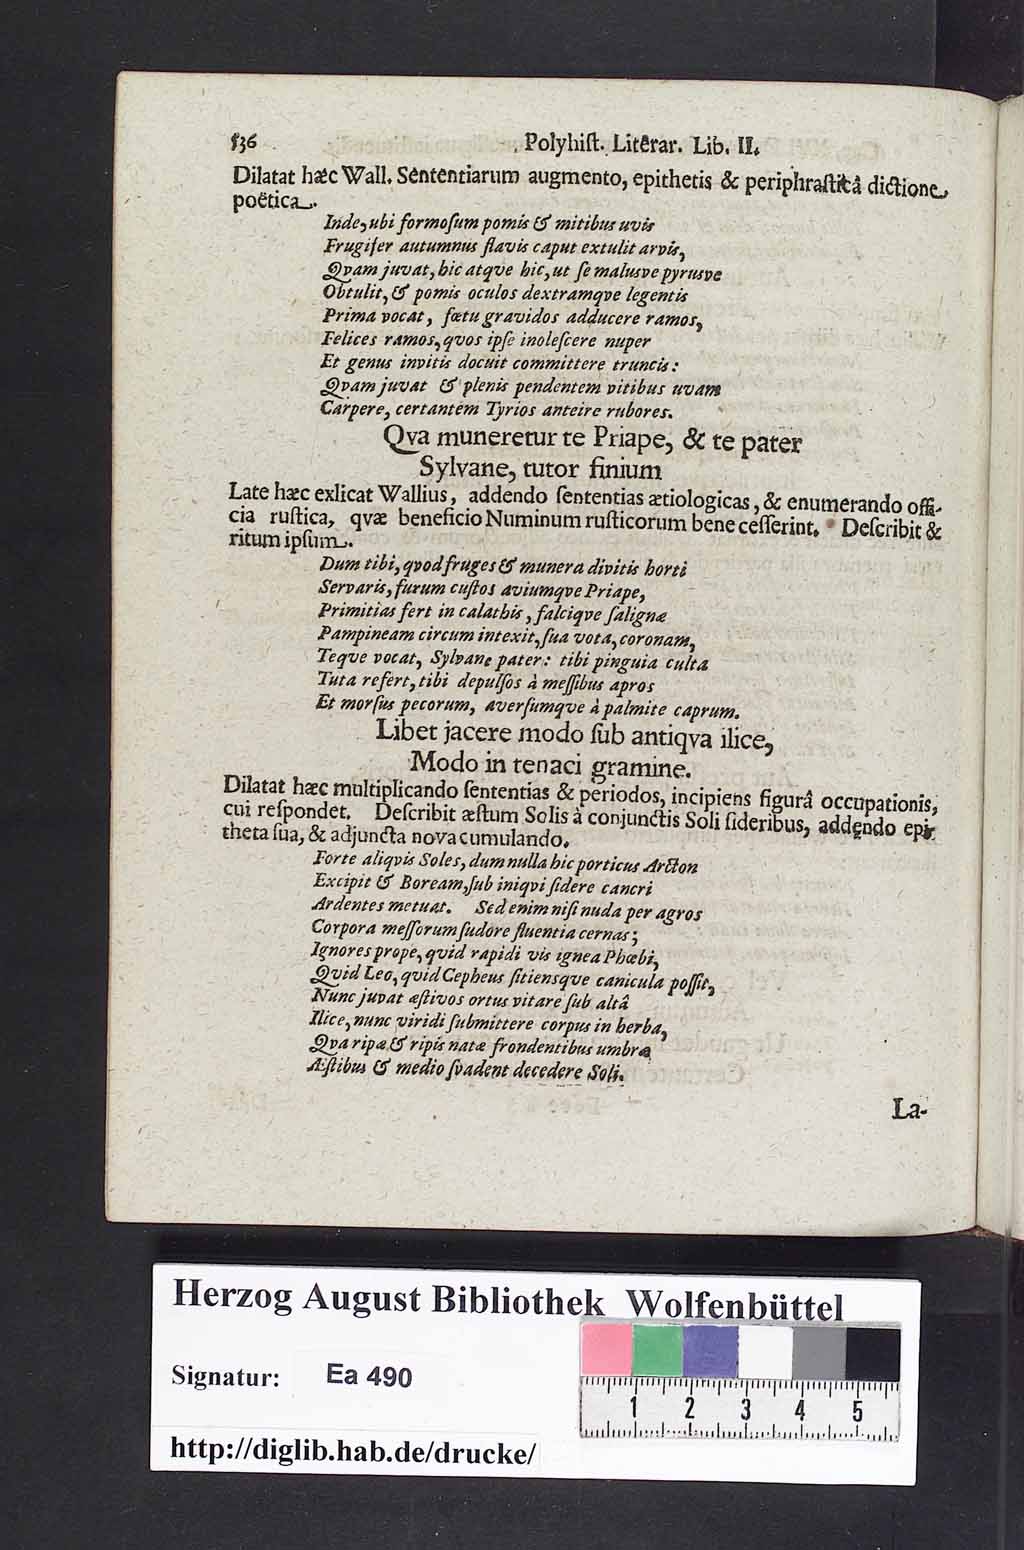 536 Polyhiſt. Literar. Lib. II.
Dilatat hæc Wall. Sententiarum augmento, epithetis & periphraſticâ dictione
poëtica.
Inde, ubi formoſum pomis & mitibus uvis
Frugifer autumnus flavis caput extulit arvis,
Qvam juvat, hic atqve hic, ut ſe malusve pyrusve
Obtulit, & pomis oculos dextramqve legentis
Prima vocat, fœtu gravidos adducere ramos,
Felices ramos, qvos ipſe inoleſcere nuper
Et genus invitis docuit committere truncis:
Qvam juvat & plenis pendentem vitibus uvam
Carpere, certantem Tyrios anteire rubores.
Qva muneretur te Priape, & te pater
Sylvane, tutor finium
Late hæc exlicat Wallius, addendo ſententias ætiologicas, & enumerando offi-
cia ruſtica, qvæ beneficio Numinum ruſticorum bene ceſſerint. Deſcribit &
ritum ipſum.
Dum tibi, qvod fruges & munera divitis horti
Servaris, furum cuſtos aviumqve Priape,
Primitias fert in calathis, falciqve ſalignæ
Pampineam circum intexit, ſua vota, coronam,
Teqve vocat, Sylvane pater: tibi pinguia culta
Tuta refert, tibi depulſos à meſſibus apros
Et morſus pecorum, averſumqve à palmite caprum.
Libet jacere modo ſub antiqva ilice,
Modo in tenaci gramine.
Dilatat hæc multiplicando ſententias & periodos, incipiens figurâ occupationis,
cui reſpondet. Deſcribit æſtum Solis à conjunctis Soli ſideribus, addendo epi-
theta ſua, & adjuncta nova cumulando.
Forte aliqvis Soles, dum nulla hic porticus Arcton
Excipit & Boream, ſub iniqvi ſidere cancri
Ardentes metuat. Sed enim niſi nuda per agros
Corpora meſſorum ſudore fluentia cernas;
Ignores prope, qvid rapidi vis ignea Phœbi,
Qvid Leo, qvid Cepheus ſitiensqve canicula poſſit,
Nunc juvat æſtivos ortus vitare ſub altâ
Ilice, nunc viridi ſubmittere corpus in herba,
Qva ripæ & ripis natæ frondentibus umbræ
Æſtibus & medio ſvadent decedere Soli.
La-
Herzog August Bibliothek Wolfenbüttel
Signatur: Ea 490
1 2 3 4 5
http://diglib.hab.de/drucke/